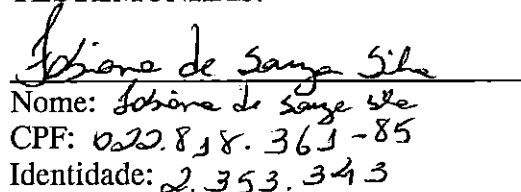 TESTEMUNHAS:
Fabiana de Souza Silva
Nome: Fabiana de Souza Silva
CPF: 022.818.361-85
Identidade: 2.353.343